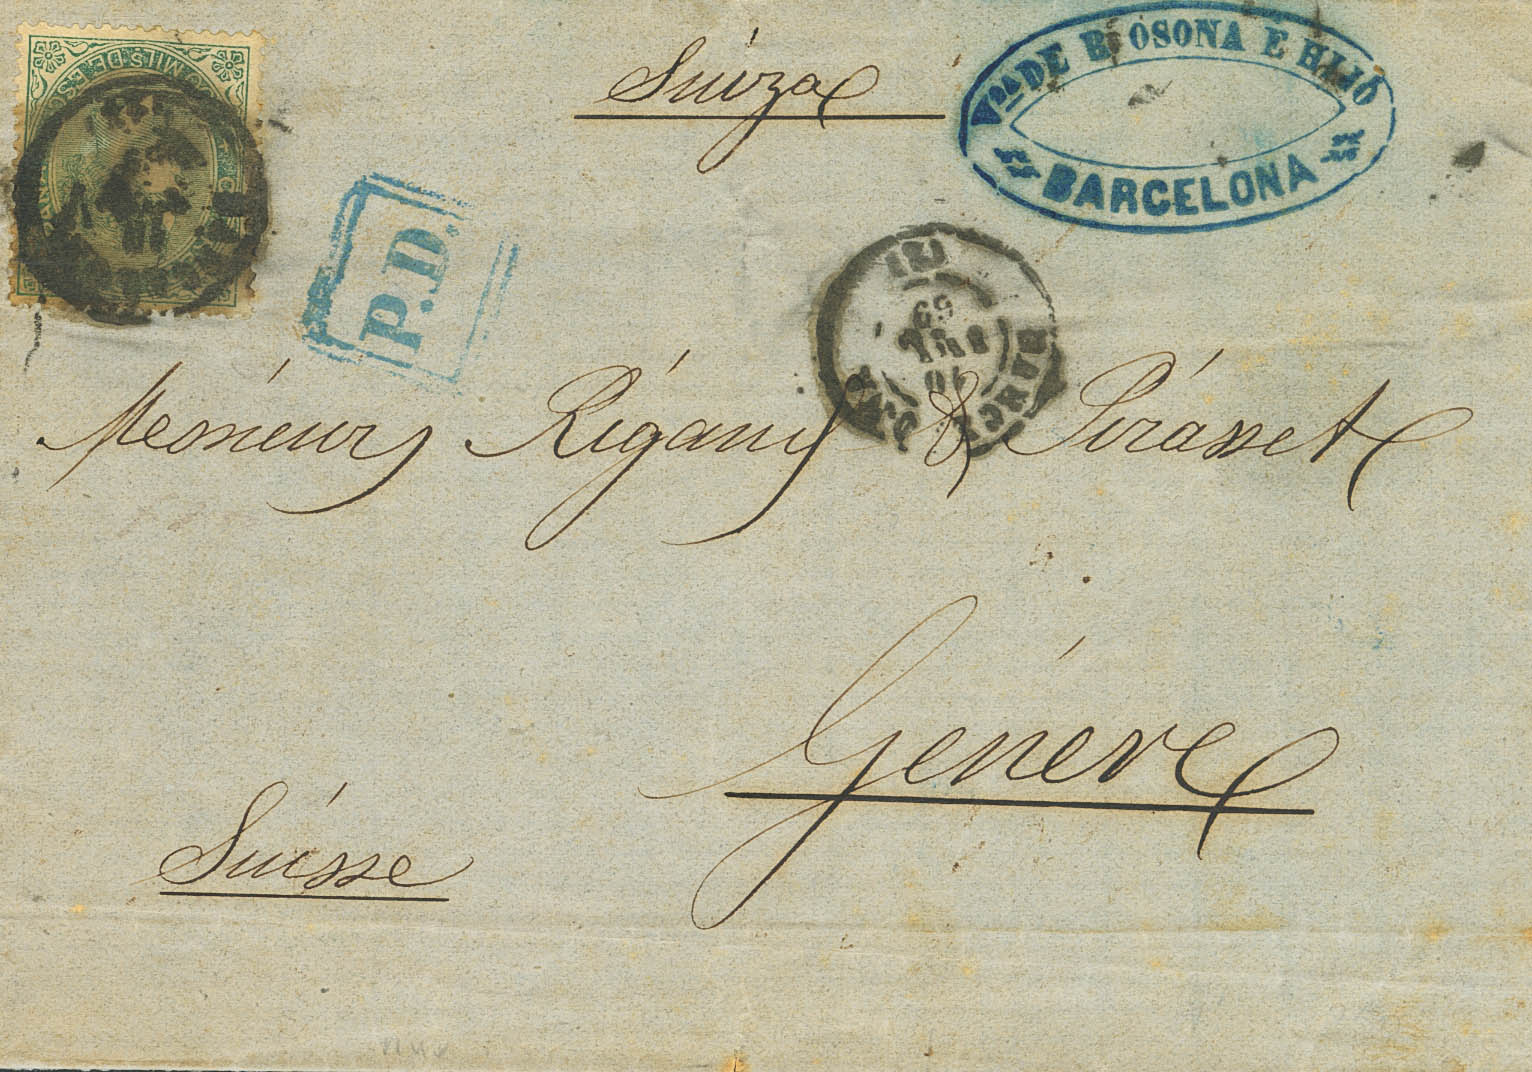 Suiza
Vda. DE OSONA É HIJO
BARCELONA
P.D.
Messieurs Rigany & Pirasset
Genève
Suisse